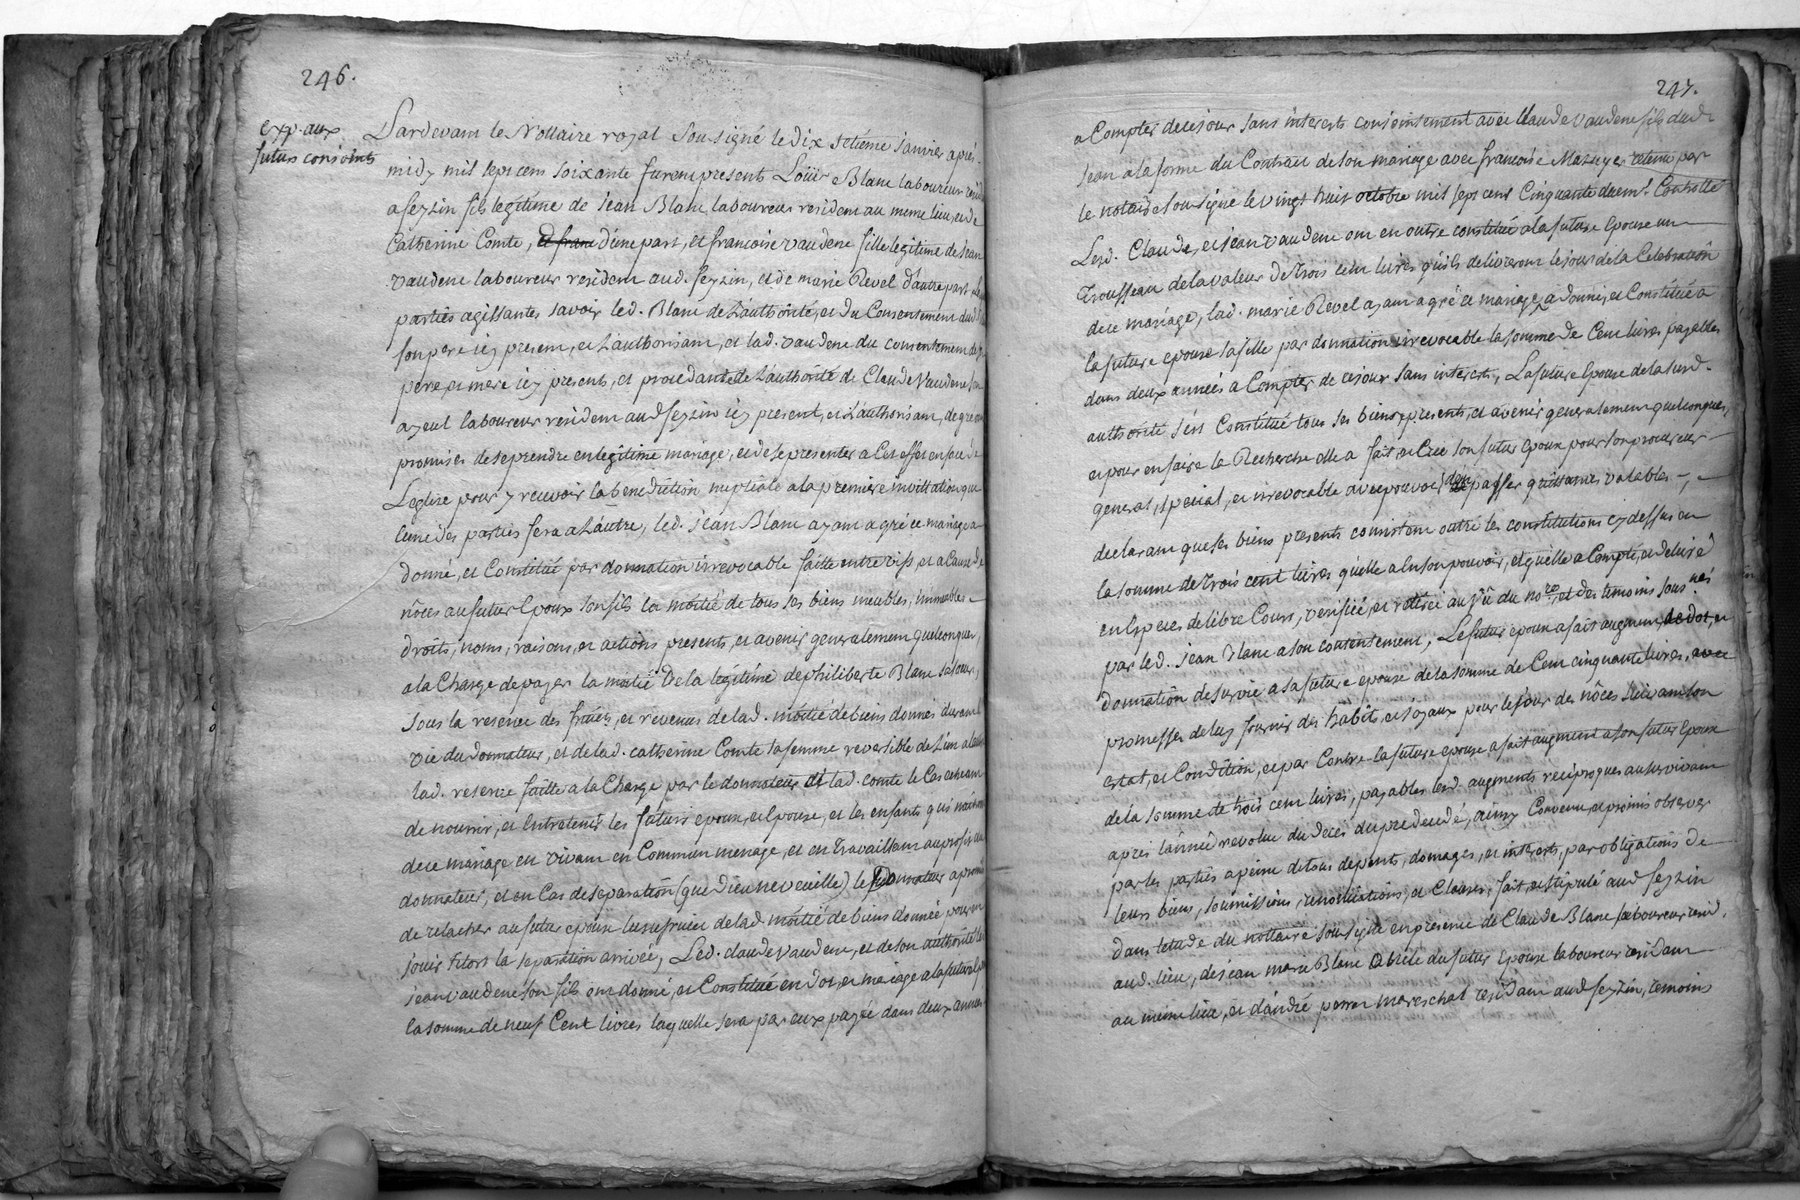 246.
exp. aux
futurs conjoints
Pardevant le Nottaire royal Sousigné le dix setiéme janvier aprés
midy mil sept cens soixante furent presents Loüis Blanc laboureur resid
a seyzin fils legitime de jean Blanc laboureur resident au meme lieu, et de
Catherine Comte, et fran d'une part, et francoise vaudene fille legitime de jean
vaudene laboureur resident aud. seyzin, et de marie Revel d'autre part
parties agissantes savoir led. Blanc de L'authorité, et du Consentement dud
son pere icy present, et L'authorisant, et lad. vaudene du consentement de
pere, et mere icy presents, et procedante de L'authorité de Claude Vaudene son
ayeul laboureur resident aud seyzin icy present, et L'authorisant, de gré ont
promis de se prendre en legitime mariage, et de se presenter a Cet effet en face de
L'eglise pour y recevoir la benediction nuptiale a la premiere invittation que
l'une des parties fera a L'autre, led. jean Blanc ayant agréé ce mariage a
donné, et Constitué par donnation irrevocable faitte entre vifs et a Cause de
nôces au futur Epoux son fils la môitié de tous ses biens meubles, immeubles
droits, noms, raisons, et actions presents, et avenir generalement quelconques,
a la Charge de payer la moitié de la légitime de philiberte Blanc sa sœur,
sous la reserve des fruits, et revenus de lad. môitié de biens donnés durant
vie du donnateur, et de lad. catherine Comte sa femme reversible de L'un a L'autre
lad. reserve faitte a la Charge par le donnateur et lad. comte le Cas echeant
de nourrir, et Entretenir les futurs epoux, et Epouse, et les enfants qui naitront
de ce mariage en vivant en Commun menage, et en Travaillant au profit du
donnateur, et en Cas de separation (que Dieu ne veuille) le Donnateur a promis
de relacher au futur epoux l'usufruit de lad. môitié de biens donnée pour en
jouir sitôst la separation arrivée, Led. claude vaudene, et de son authorité led
jean vaudene son fils ont donné, et Constitué en dot, et mariage a la future Epouse
la somme de neuf Cent livres laquelle sera par eux payée dans deux années
247.
a Compter de ce jour sans interests conjointement avec Claude vaudene fils dud.
jean a la forme du Contrat de son mariage avec francoise Mazuyer retenu par
le notaire sousigné le vingt huit octobre mil sept cent Cinquante deument Controllé
Lesd. Claude, et jean vaudene ont en outre constitué a la future Epouse un
Trousseau de la valeur de trois cent livres qu'ils delivreront le jour de la Celebration
de ce mariage, lad. marie Revel ayant agréé ce mariage, a donné, et Constitué a
la future epouse sa fille par donnation irrevocable la somme de Cent livres payables
dans deux années a Compter de ce jour sans interests, La future Epouse de la susd.
authorité s'est Constitué tous ses biens presents, et avenir generalement quelconques,
et pour en faire la Recherche elle a fait, et Créé son futur Epoux pour son procureur
general, special, et irrevocable avec pouvoir d'en passer quittances valables
declarant que ses biens presents consistent outre les constitutions cy dessus en
la somme de trois cent livres qu'elle a en son pouvoir, et qu'elle a Compté, et delivré
en Especes de libre Cours, verifiée, et retirée au vû du nore, et des temoins sousnés
par led. jean Blanc a son contentement, Le futur epoux a fait augment de dot, et
donnation de survie a sa future epouse de la somme de Cent cinquante livres, avec
promesse de luy fournir des habits, et joyaux pour le jour de nôces suivant son
estat, et Condition, et par Contre la future epouse a fait augment a son futur Epoux
de la somme de trois cent livres, payables lesd. augments reciproques au survivant
aprés l'année revolue du decés du predecedé, ainsy Convenu, et promis observer
par les parties a peine de tous depents, domages, et interests, par obligations de
leurs biens, soumissions, renontiations, et Clauses, fait, et stipulé aud seyzin
dans letude du nottaire sousigné en presence de Claude Blanc laboureur resid.
aud. lieu, de jean marie Blanc oncle du futur Epoux laboureur resident
au même lieu, et d'andré perron mareschal resident aud seyzin, temoins